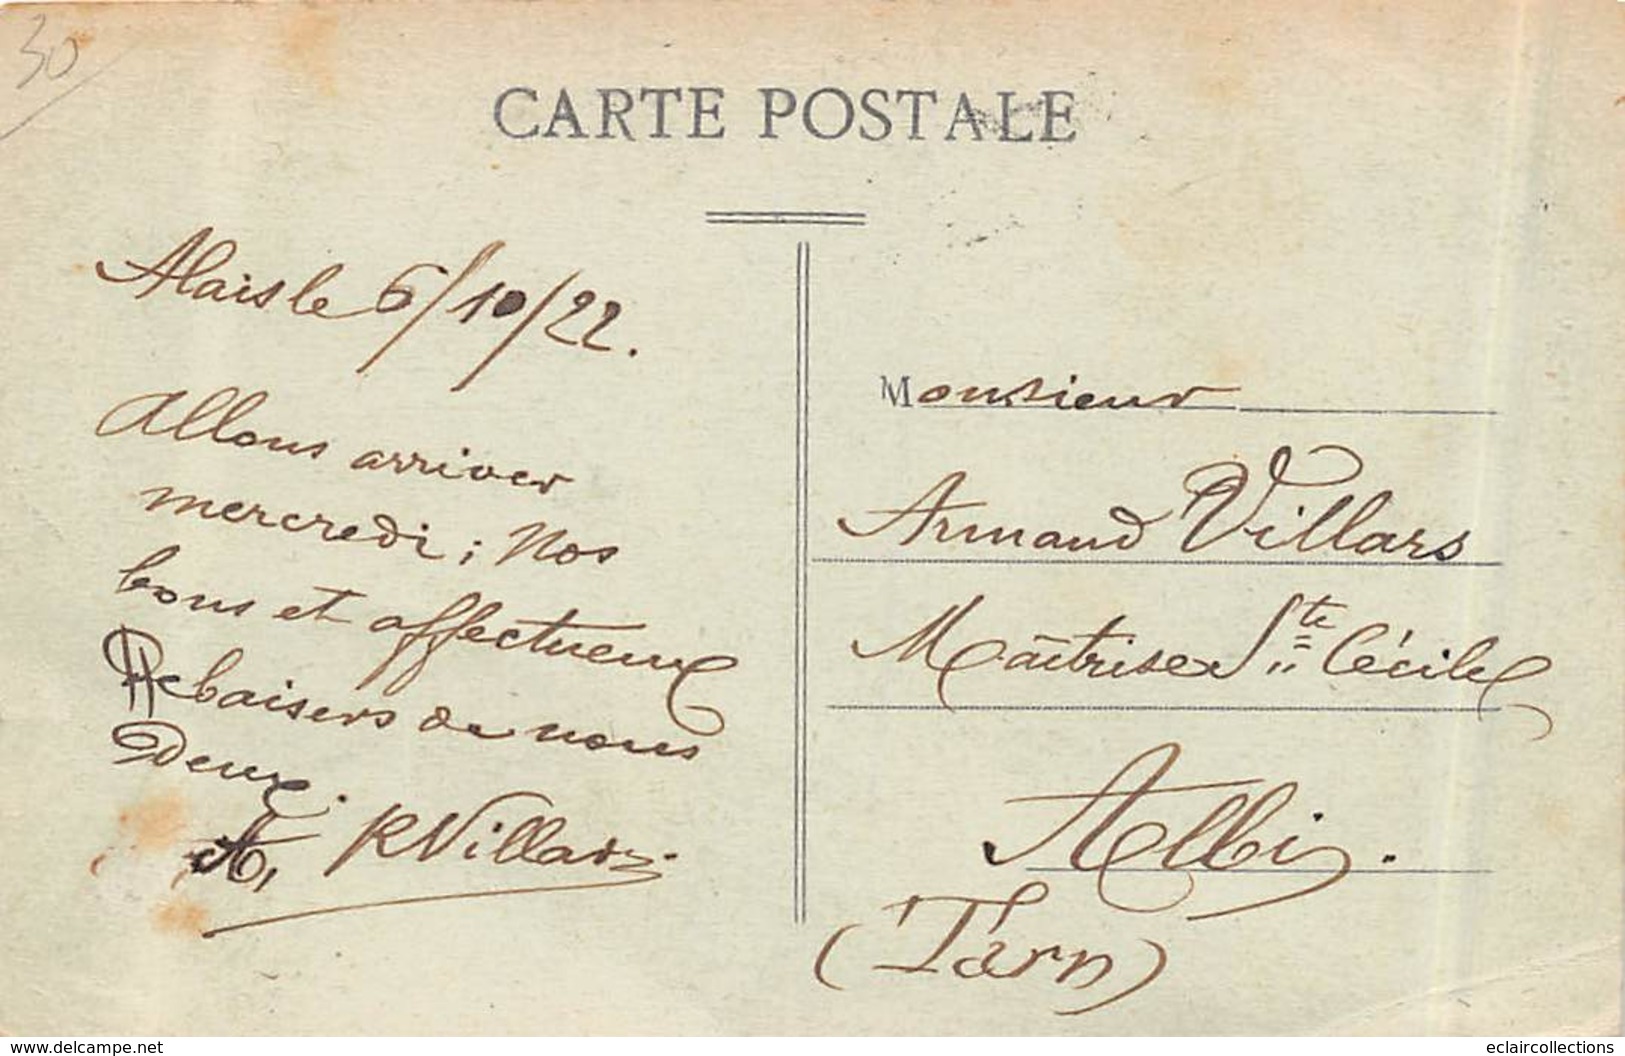 30
CARTE POSTALE
Alais le 6/10/22.
Allons arriver
mercredi ; Nos
bons et affectueux
baisers de nous
Deux.
A, R Villars
Monsieur
Armand Villars
Maîtrise Ste Cécile
Albi.
(Tarn)
www.delcampe.net
eclaircollections